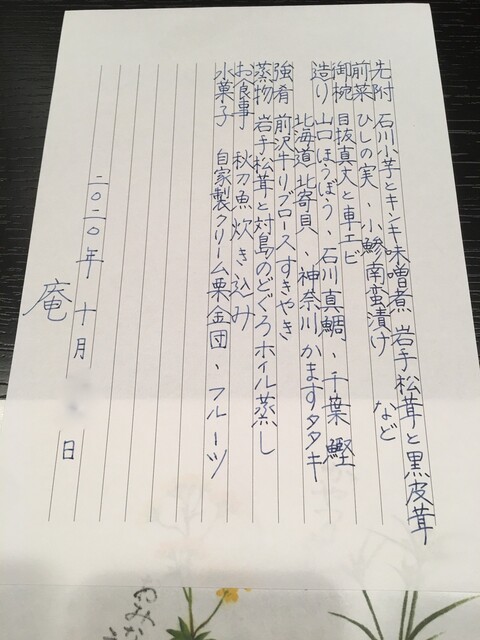 先附 石川小芋とキンキ味噌煮 岩手松茸と黒皮茸
前菜 ひしの実、小鯵南蛮漬け など
御椀 目抜真丈と車エビ
造り 山口ほうぼう、石川真鯛、千葉 鰹
北海道 北寄貝、神奈川かますタタキ
強肴 前沢牛リブロースすきやき
蒸物 岩手松茸と対島のどぐろホイル蒸し
お食事 秋刀魚炊き込み
水菓子 自家製クリーム栗金団、フルーツ
二〇二〇年 十月 日
庵